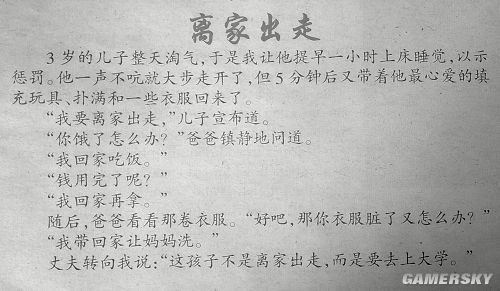 离家出走
3岁的儿子整天淘气,于是我让他提早一小时上床睡觉,以示
惩罚。他一声不吭就大步走开了,但5分钟后又带着他最心爱的填
充玩具、扑满和一些衣服回来了。
“我要离家出走,”儿子宣布道。
“你饿了怎么办?”爸爸镇静地问道。
“我回家吃饭。”
“钱用完了呢?”
“我回家再拿。”
随后,爸爸看看那卷衣服。“好吧,那你衣服脏了又怎么办?”
“我带回家让妈妈洗。”
丈夫转向我说:“这孩子不是离家出走,而是要去上大学。”
GAMERSKY